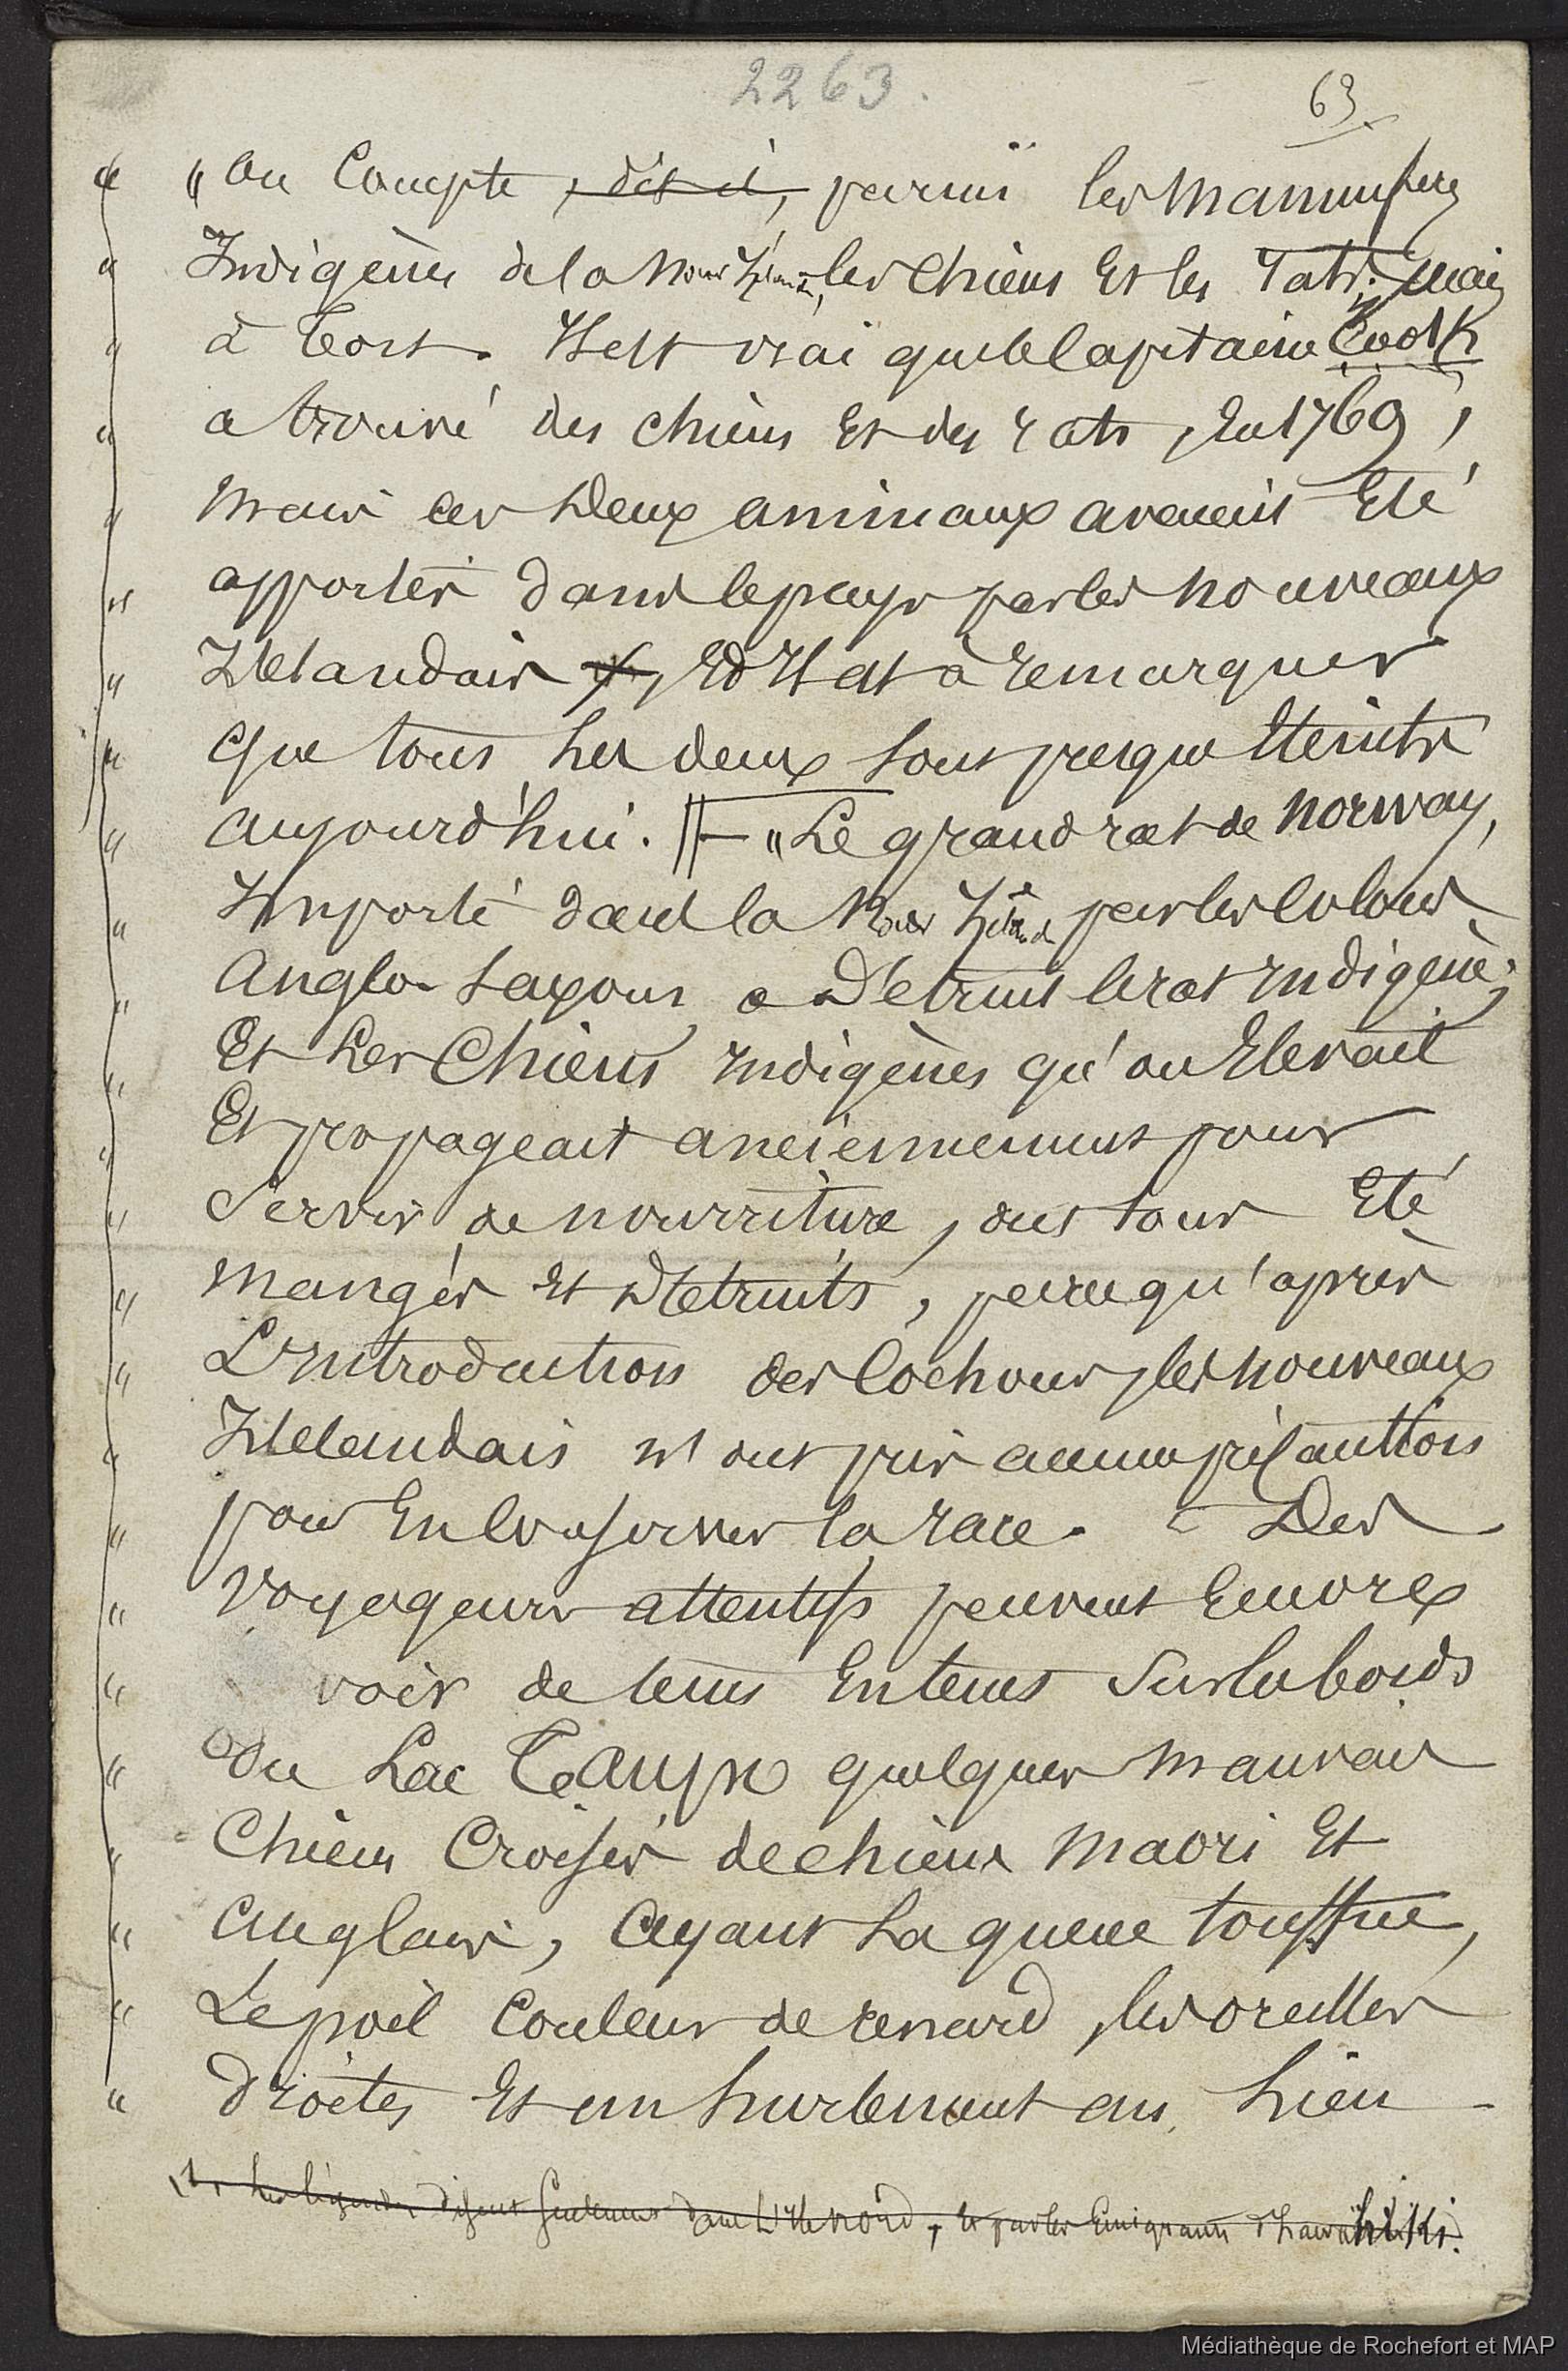 2263.
63
" on Compte, dit-il, parmi les mammifères
Indigènes de la Nouv Zéland, les chiens Et les rats; mais
à tort. Il est vrai que le Capitaine Cook
a trouvé des chiens Et des rats, En 1769,
mais ces Deux animaux avaient Eté
apportés dans le pays par les nouveaux
Zélandais, Et Il est à remarquer
que tous les deux sont presque Eteints
aujourd'hui. "Le grand rat de Norway,
Importé dans la Nouv Zéland par les Colons
Anglo-Saxons a Détruit le rat Indigène;
Et Les Chiens Indigènes qu'on Elevait
Et propageait anciennement pour
Servir de nourriture, ont tous Eté
mangés Et Détruits, parcequ'après
L'Introduction des Cochons, les nouveaux
Zélandais n'ont pris aucune précaution
pour En Conserver la race. Des
voyageurs attentifs peuvent Encore
voir de tems En tems Sur les bords
du Lac Taupo quelques mauvais
Chiens Croisés de chiens Maori Et
Anglais, ayant La queue touffue,
Le poil Couleur de renard, les oreilles
droites Et un hurlement au lieu
1. Les légendes disent seulement dans L'Ile nord, Et par les Emigrants d'Hawaïki.
Médiathèque de Rochefort et MAP